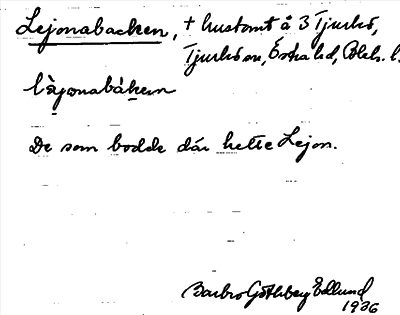 Lejonabacken, + hustomt å 3 Tjurkö,
Tjurkö sn, Östra hd, Blek. l.
lȧjonabȧken
De som bodde där hette Lejon.
Barbro Göthberg Edlund
1936